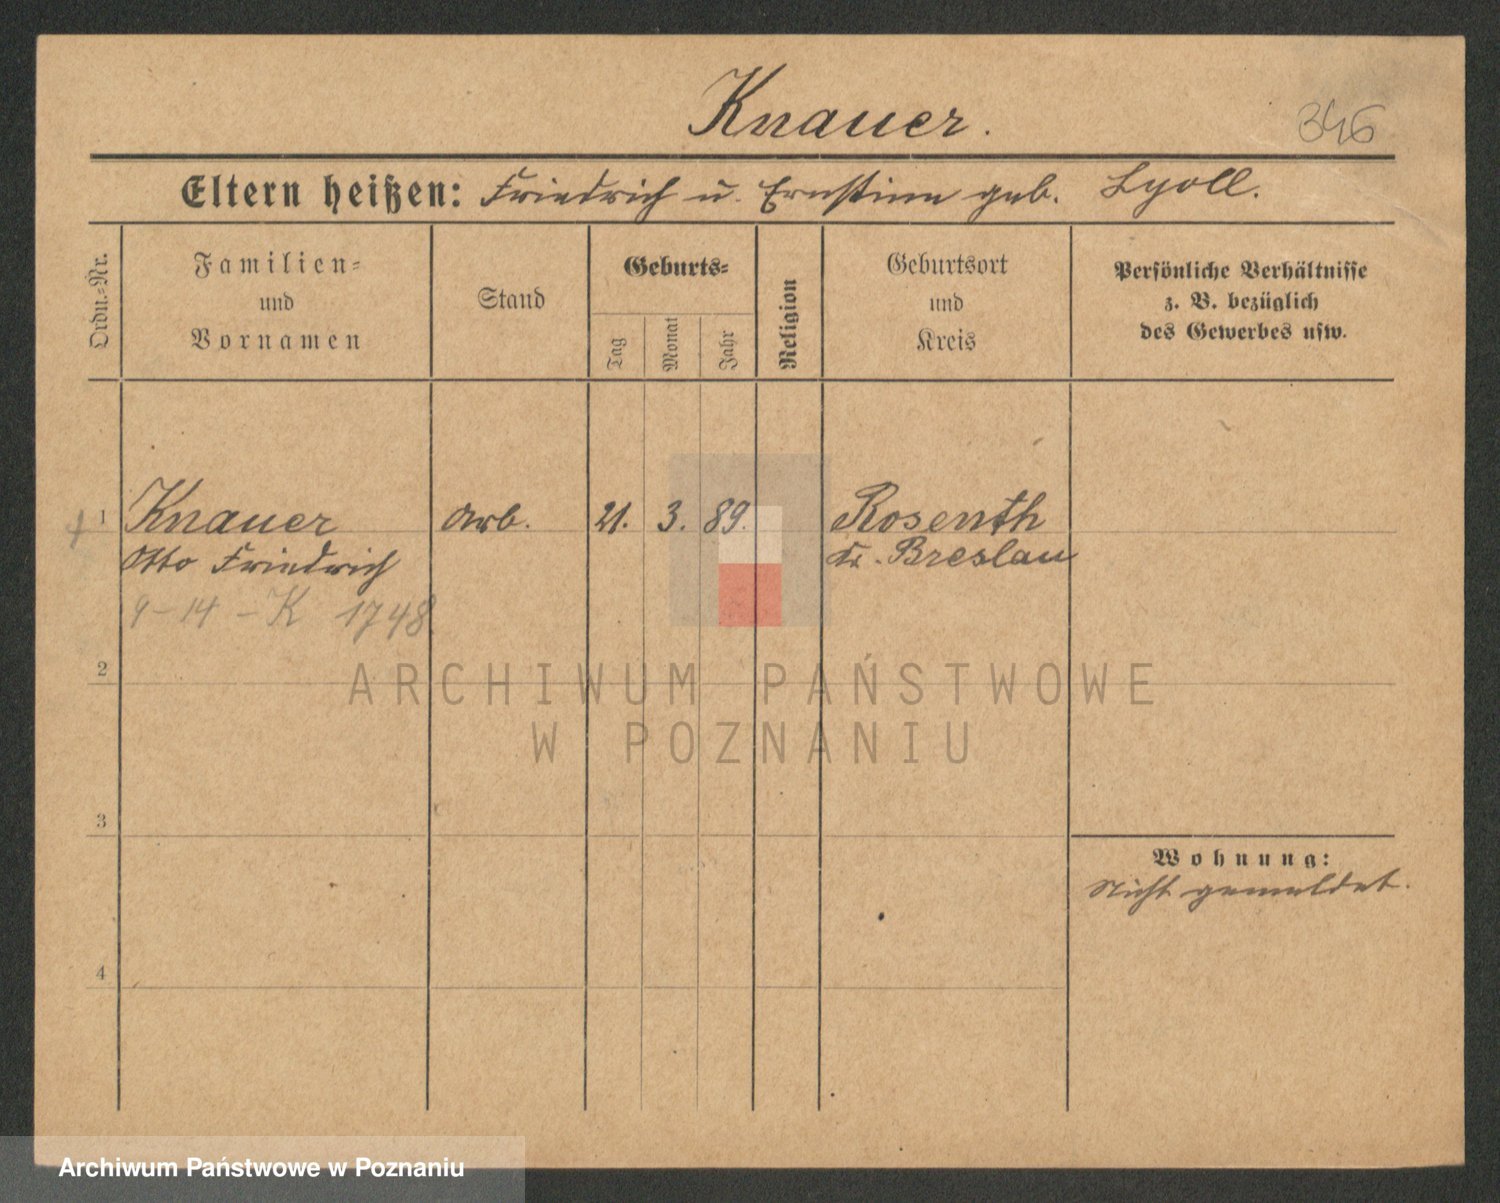 Knauer.
346
Eltern heißen: Friedrich u. Ernstine geb. Lyoll.
Ordn.-Nr.
Familien-
und
Vornamen
Stand
Geburts-
Tag
Monat
Jahr
Religion
Geburtsort
und
Kreis
Persönliche Verhältnisse
z. B. bezüglich
des Gewerbes usw.
1 Knauer Arb. 21. 3. 89. Rosenth
Otto Friedrich Kr. Breslau
9-14 - K 1748
2
ARCHIWUM PAŃSTWOWE
W POZNANIU
3
Wohnung:
Nicht gemeldet.
4
Archiwum Państwowe w Poznaniu